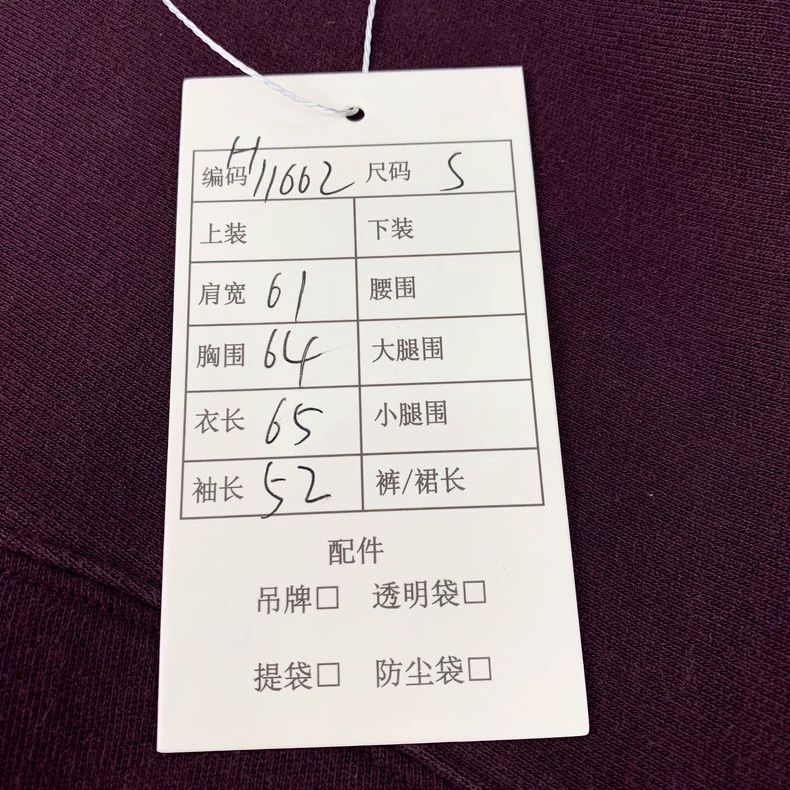 编码 H11662 尺码 S
上装 下装
肩宽 61 腰围
胸围 64 大腿围
衣长 65 小腿围
袖长 52 裤/裙长
配件
吊牌□ 透明袋□
提袋□ 防尘袋□